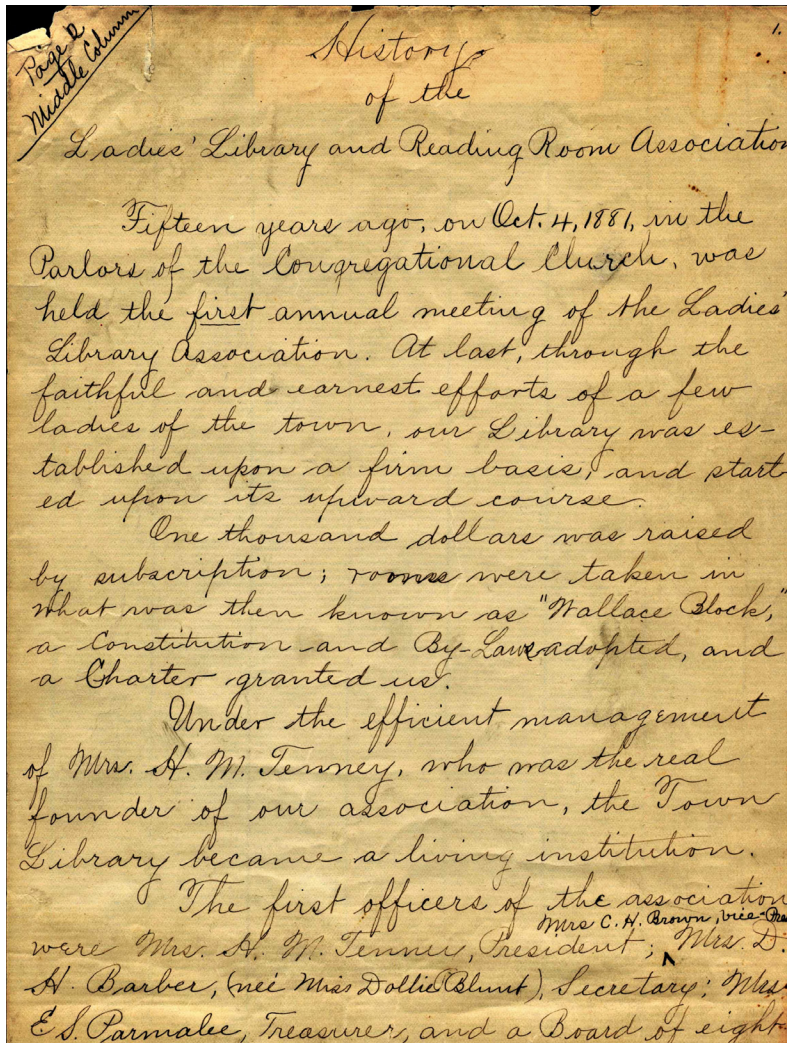 Page 2
Middle Column
1.
History
of the
Ladies' Library and Reading Room Association
Fifteen years ago, on Oct. 4, 1881, in the
Parlors of the Congregational Church, was
held the first annual meeting of the Ladies'
Library Association. At last, through the
faithful and earnest efforts of a few
ladies of the town, our Library was es-
tablished upon a firm basis, and start-
ed upon its upward course.
One thousand dollars was raised
by subscription; rooms were taken in
what was then known as "Wallace Block,"
a Constitution and By-Laws adopted, and
a Charter granted us.
Under the efficient management
of Mrs. H. M. Tenney, who was the real
founder of our association, the Town
Library became a living institution.
The first officers of the association
Mrs C. H. Brown, vice-Pres
were Mrs. H. M. Tenney, President; ^ Mrs. D.
H. Barber, (neé Miss Dollie Blunt), Secretary; Mrs
E S. Parmalee, Treasurer, and a Board of eight